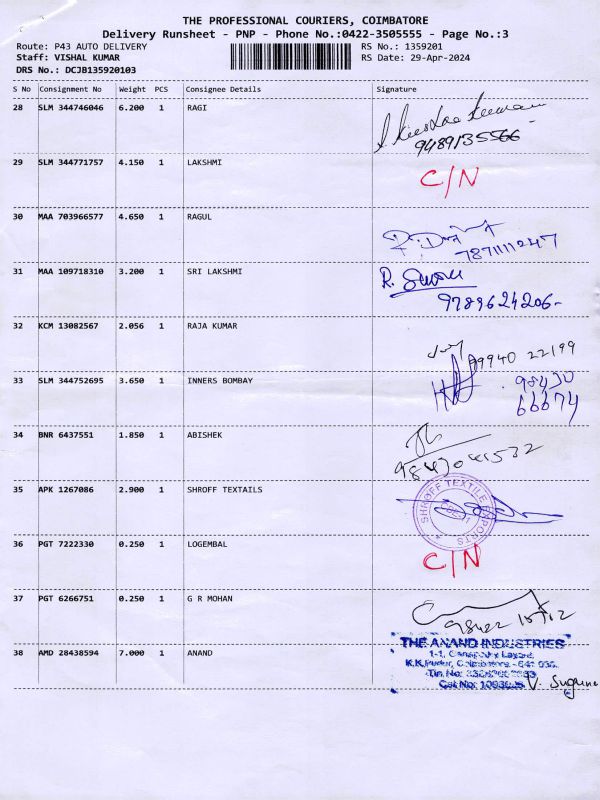 THE PROFESSIONAL COURIERS, COIMBATORE
Delivery Runsheet - PNP - Phone No.:0422-3505555 - Page No.:3
Route: P43 AUTO DELIVERY RS No.: 1359201
Staff: VISHAL KUMAR RS Date: 29-Apr-2024
DRS No.: DCJB135920103
S No Consignment No Weight PCS Consignee Details Signature
28 SLM 344746046 6.200 1 RAGI
9489135566
29 SLM 344771757 4.150 1 LAKSHMI C/N
30 MAA 703966577 4.650 1 RAGUL
7871111247
31 MAA 109718310 3.200 1 SRI LAKSHMI R.
9789624206-
32 KCM 13082567 2.056 1 RAJA KUMAR
99940 22199
33 SLM 344752695 3.650 1 INNERS BOMBAY 98430
66674
34 BNR 6437551 1.850 1 ABISHEK
9843041532
35 APK 1267086 2.900 1 SHROFF TEXTAILS
SHROFF TEXTILE EXPORTS
36 PGT 7222330 0.250 1 LOGEMBAL C/N
37 PGT 6266751 0.250 1 G R MOHAN
38 AMD 28438594 7.000 1 ANAND
THE ANAND INDUSTRIES
K.K.Pudur, Coimbatore - 641 038.
Tin No:
Cst No:
V. Suguna